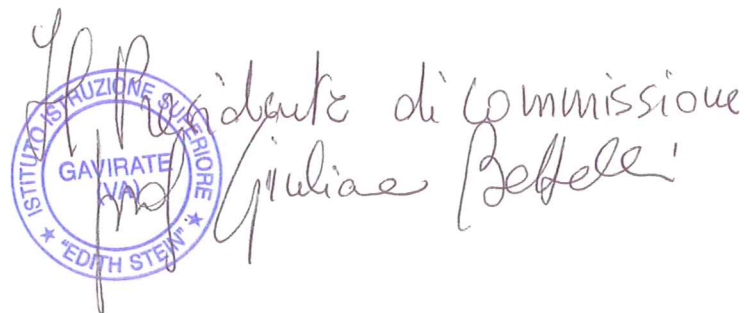 Il Presidente di commissione
prof Giuliana Bettelli
ISTITUTO ISTRUZIONE SUPERIORE
GAVIRATE
VA
★ "EDITH STEIN" ★